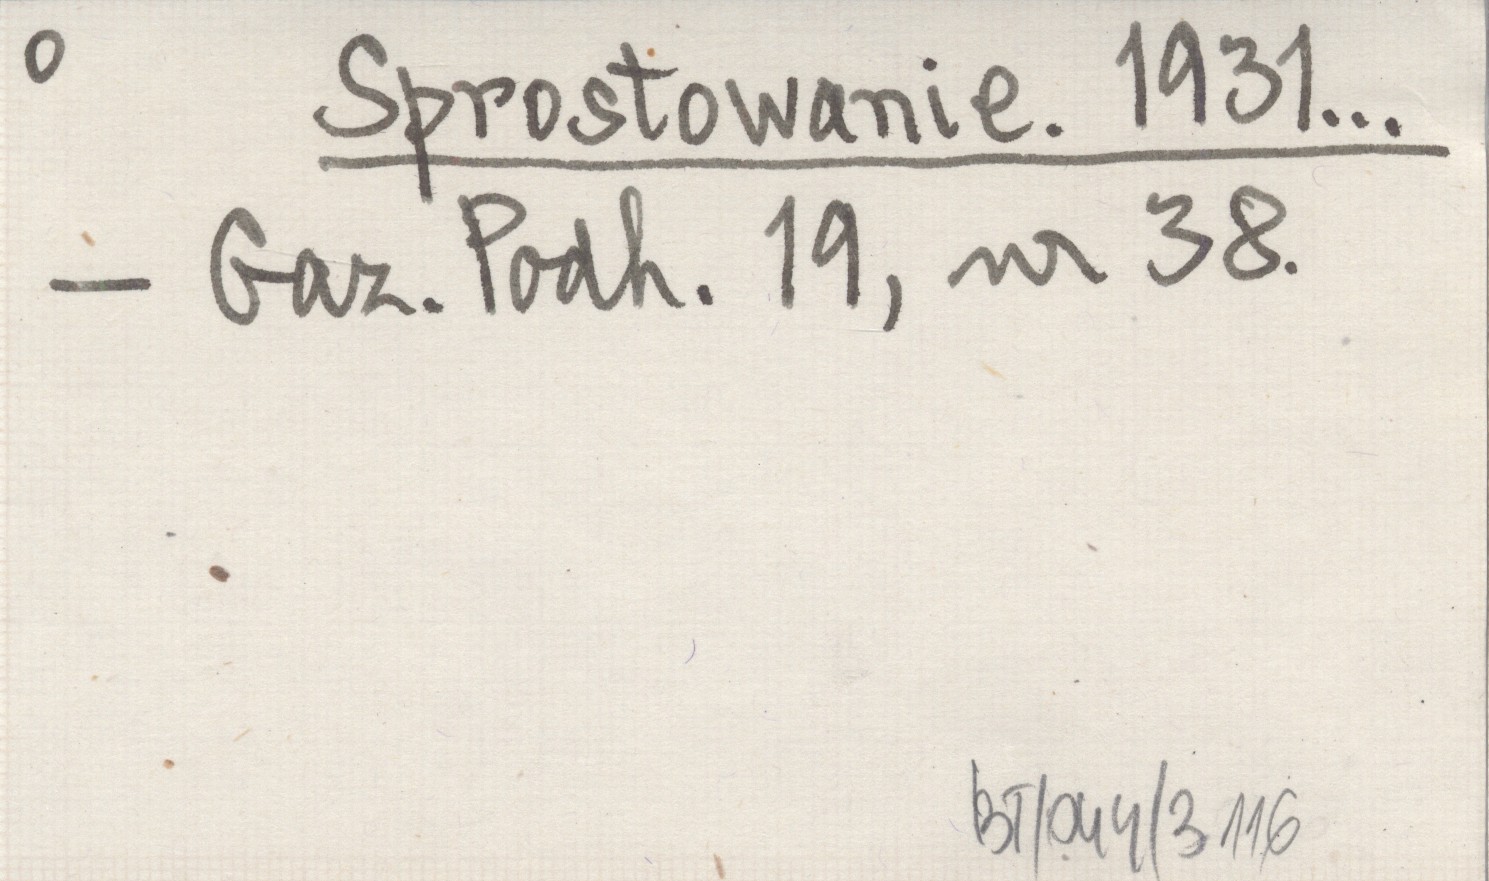 o Sprostowanie. 1931...
— Gaz. Podh. 19, nr 38.
BT/044/3 116